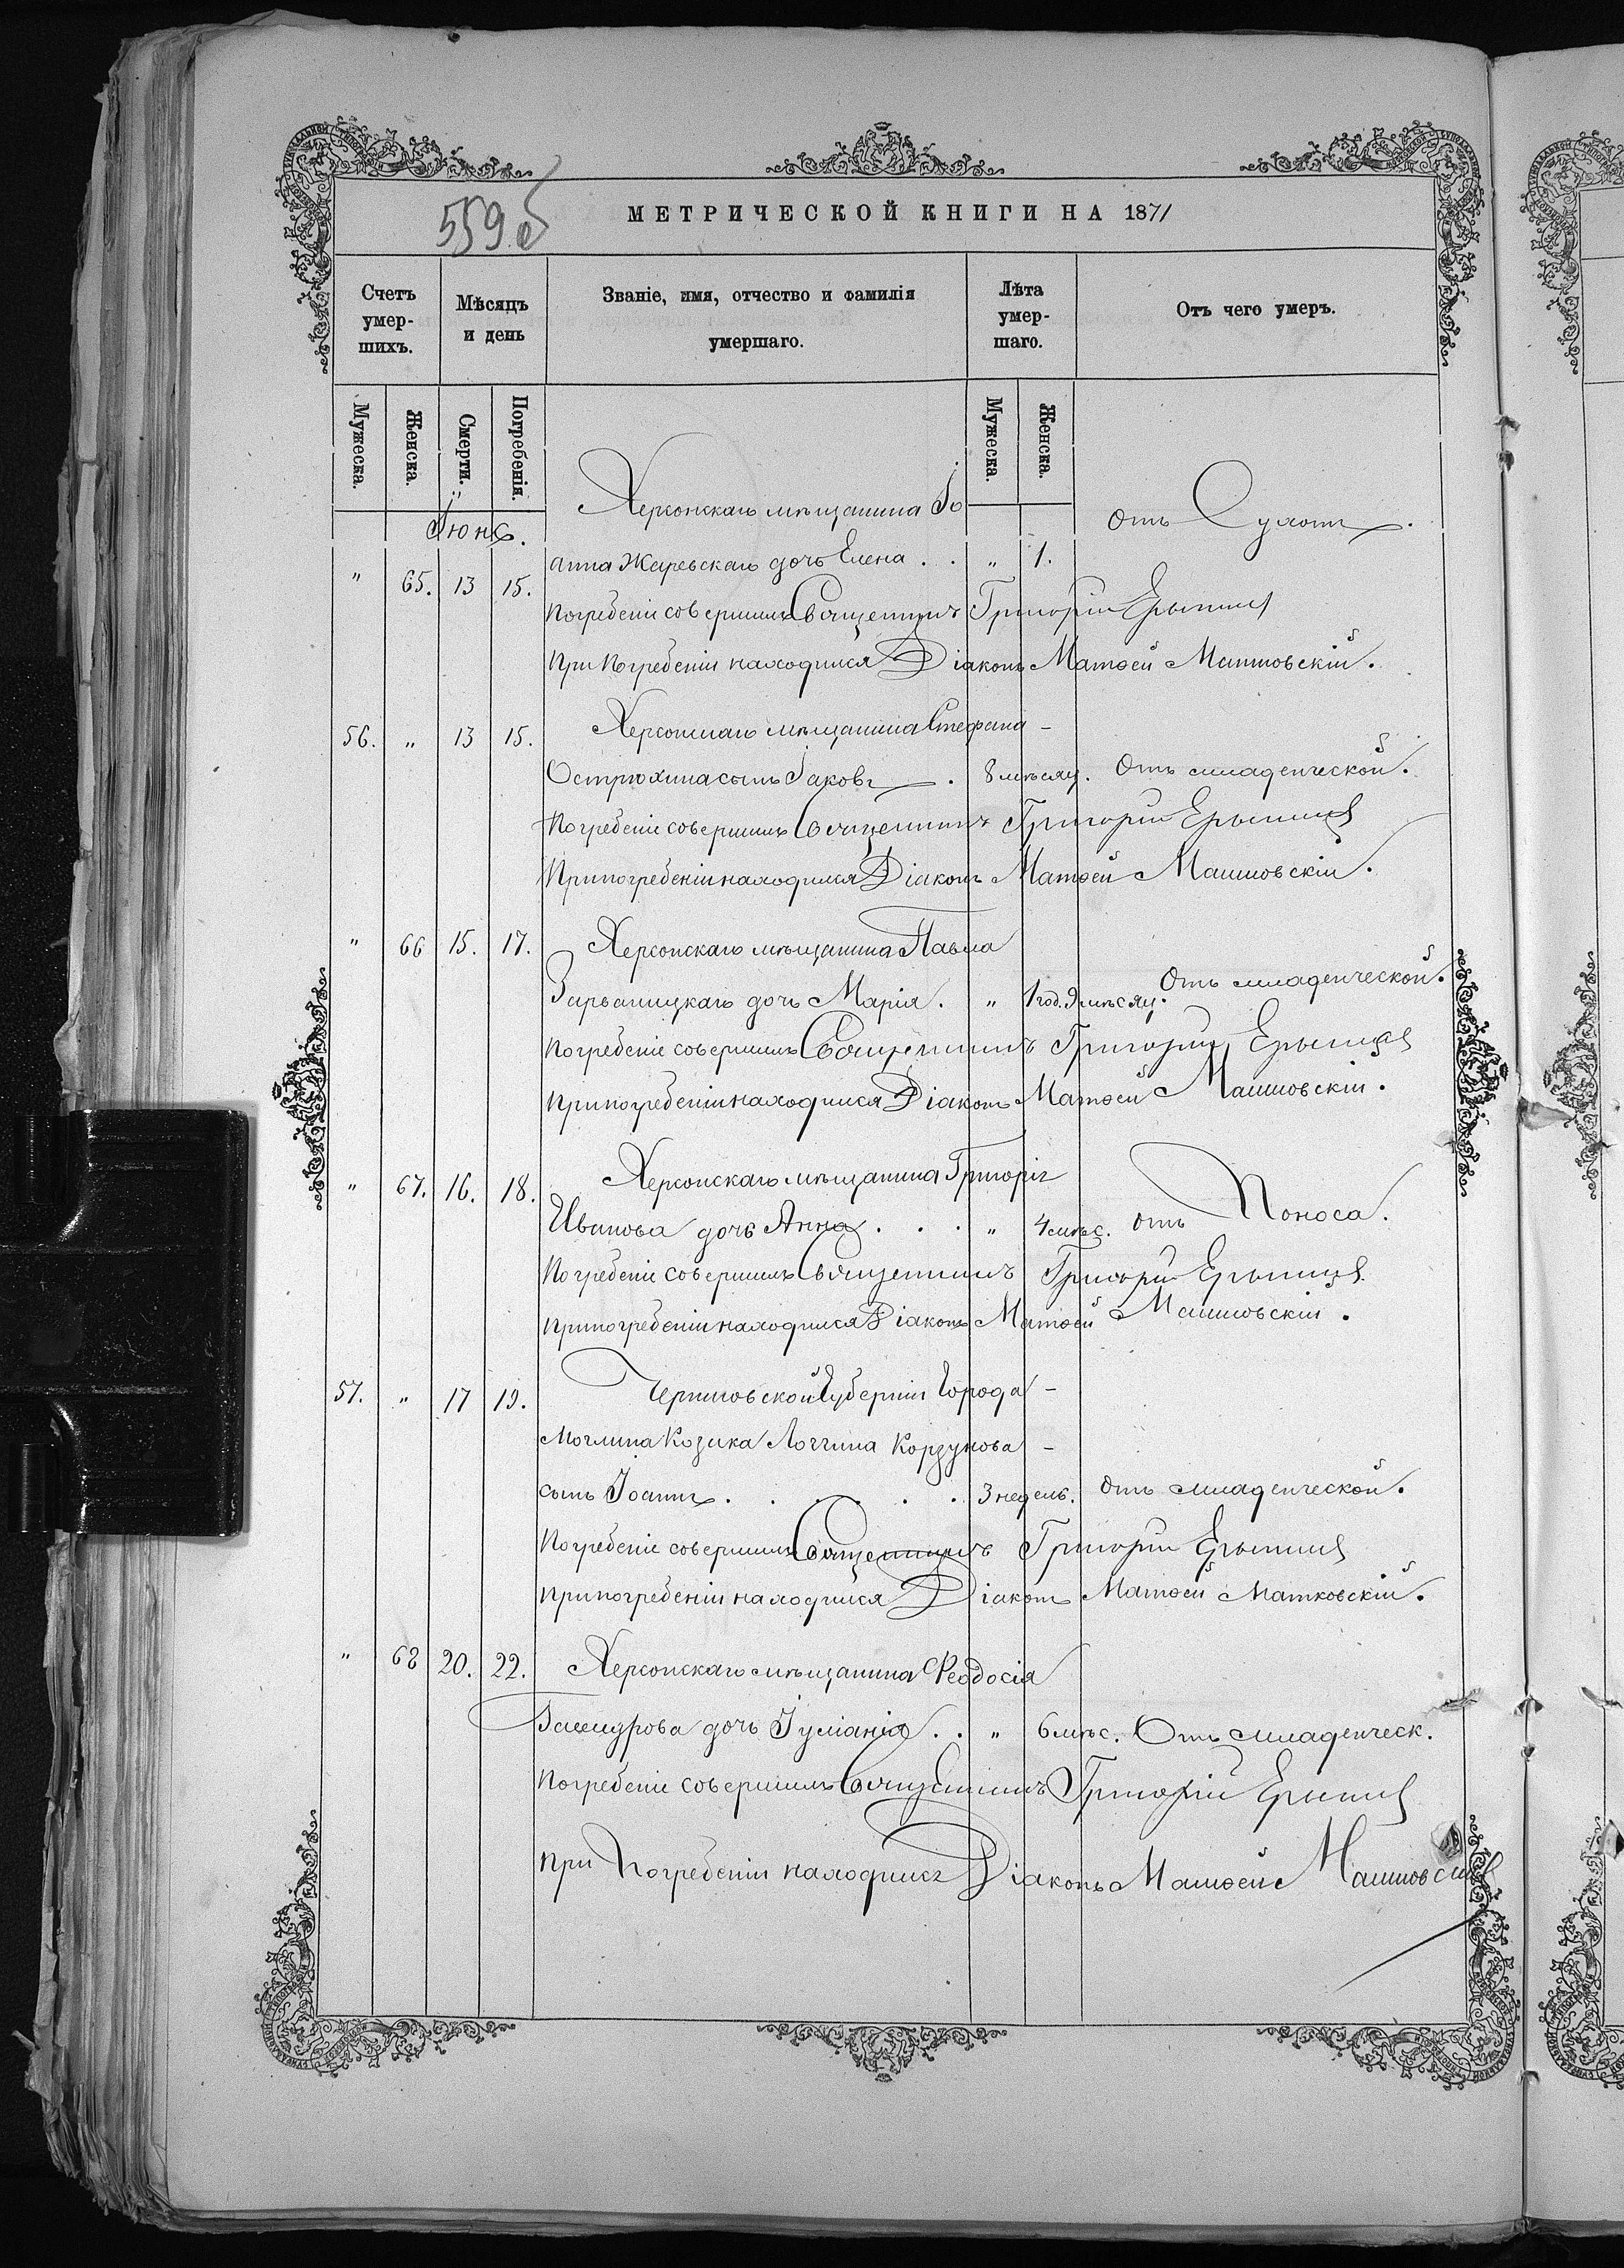 559 об
МЕТРИЧЕСКОЙ КНИГИ НА 1871
Счетъ умер-шихъ.
Мѣсяцъ и день
Званіе, имя, отчество и фамилія умершаго.
Лѣта умер-шаго.
Отъ чего умеръ.
Мужеска. Женска. Смерти. Погребенія. Мужеска. Женска.
Іюнь.
Херсонскаго мѣщанина Іо
" 65. 13 15. анна Жаревскаго дочь Елена . . " 1. Отъ Сухотъ.
Погребеніе совершилъ Священникъ Григорій
При Погребеніи находился Діаконъ Матѳей Матковскій.
56. " 13 15. Херсонскаго мѣщанина Стефана -
Острюхина сынъ Іаковъ . 8 мѣсяц. Отъ младенческой.
Погребеніе совершилъ Священникъ Григорій
При погребеніи находился Діаконъ Матѳей Матковскій.
" 66 15. 17. Херсонскаго мѣщанина Павла
Зарваницкаго дочь Марія. " 1 год. 9 мѣсяц. Отъ младенческой.
Погребеніе совершилъ Священникъ Григорій
При погребеніи находился Діаконъ Матѳей Матковскій.
" 67. 16. 18. Херсонскаго мѣщанина Григорія
Иванова дочь Анна . . . " 4 мѣс. Отъ Поноса.
Погребеніе совершилъ Священникъ Григорій
При погребеніи находился Діаконъ Матѳей Матковскій.
57. " 17 19. Черниговской Губерніи Города -
Моглина Козака Логгина Корзунова -
сынъ Іоаннъ . . . . . . 3 недель. Отъ младенческой.
Погребеніе совершилъ Священникъ Григорій
При погребеніи находился Діаконъ Матѳей Матковскій.
" 68 20. 22. Херсонскаго мѣщанина Ѳеодосія
дочь Іуліанія . . " 6 мѣс. Отъ младенческ.
Погребеніе совершилъ Священникъ Григорій
При Погребеніи находился Діаконъ Матѳей Матковскій